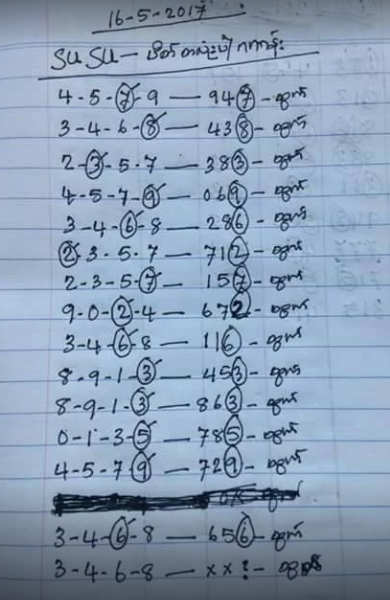 16-5-2017
SU SU — ပိတ်တလုံးပါ ဂဏန်း
4-5-7-9 — 947 - ထွက်
3-4-6-8 — 438 - ထွက်
2-3-5-7 — 383 - ထွက်
4-5-7-9 — 069 - ထွက်
3-4-6-8 — 286 - ထွက်
2-3-5-7 — 712 - ထွက်
2-3-5-7 — 157 - ထွက်
9-0-2-4 — 672 - ထွက်
3-4-6-8 — 116 - ထွက်
8-9-1-3 — 453 - ထွက်
8-9-1-3 — 863 - ထွက်
0-1-3-5 — 785 - ထွက်
4-5-7-9 — 729 - ထွက်
3-4-6-8 — 656 - ထွက်
3-4-6-8 — xx? -